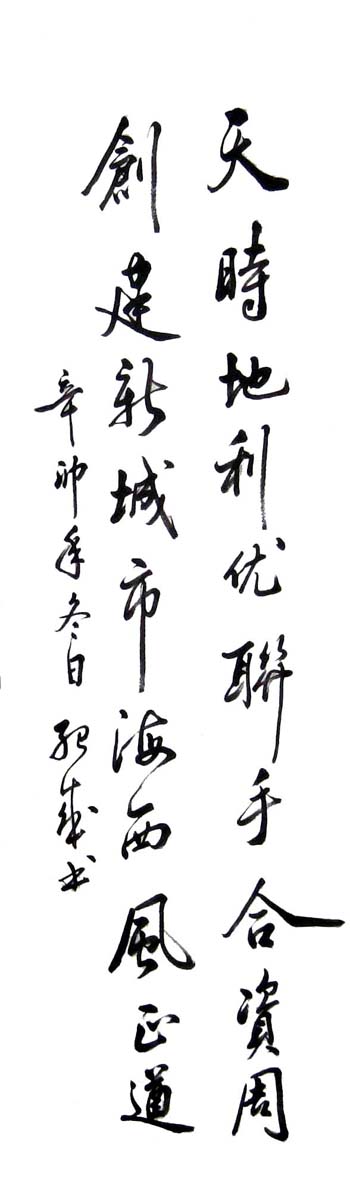 天時地利优聯手合資周
創建新城市海西風正遒
辛卯年冬日 书